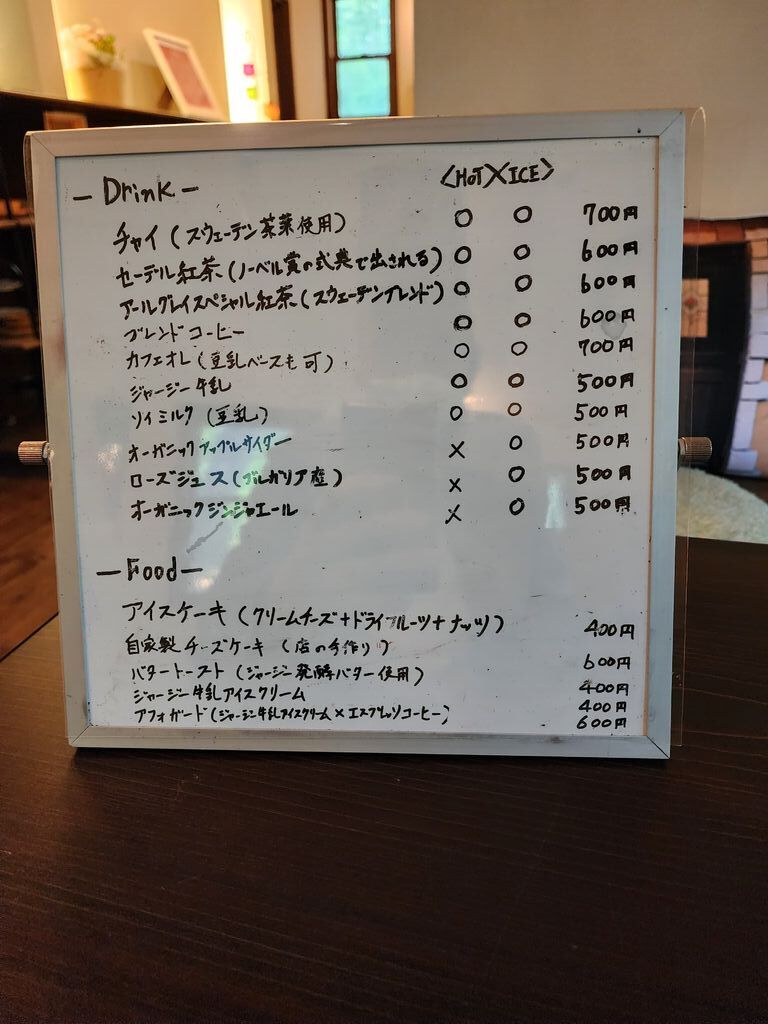 - Drink - <HOT><ICE>
チャイ (スウェーデン茶葉使用) ○ ○ 700円
セーデル紅茶 (ノーベル賞の式典で出される) ○ ○ 600円
アールグレイスペシャル紅茶 (スウェーデンブレンド) ○ ○ 600円
ブレンドコーヒー ○ ○ 600円
カフェオレ (豆乳ベースも可) ○ ○ 700円
ジャージー牛乳 ○ ○ 500円
ソイミルク (豆乳) ○ ○ 500円
オーガニックアップルサイダー × ○ 500円
ローズジュース (ブルガリア産) × ○ 500円
オーガニックジンジャエール × ○ 500円
- Food -
アイスケーキ (クリームチーズ+ドライフルーツ+ナッツ) 400円
自家製チーズケーキ (店の手作り) 600円
バタートースト (ジャージー発酵バター使用) 400円
ジャージー牛乳アイスクリーム 400円
アフォガード (ジャージー牛乳アイスクリーム×エスプレッソコーヒー) 600円